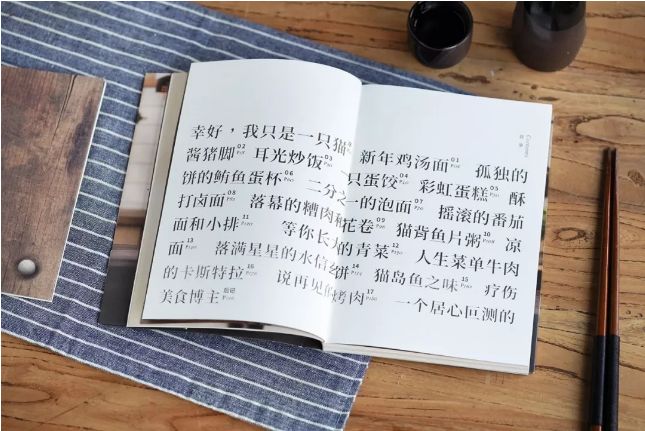 幸好，我只是一只猫 新年鸡汤面 01 孤独的
酱猪脚 02 耳光炒饭 03 一只蛋饺 04 彩虹蛋糕 05 酥
饼的鲔鱼蛋杯 06 二分之一的泡面 07 摇滚的番茄
打卤面 08 落幕的糟肉花卷 09 猫背鱼片粥 10 凉
面和小排 11 等你长大的青菜 12 人生菜单牛肉
面 13 落满星星的水信玄饼 14 猫岛鱼之味 15 疗伤
的卡斯特拉 16 说再见的烤肉 17 一个居心叵测的
美食博主 后记
Contents
目录